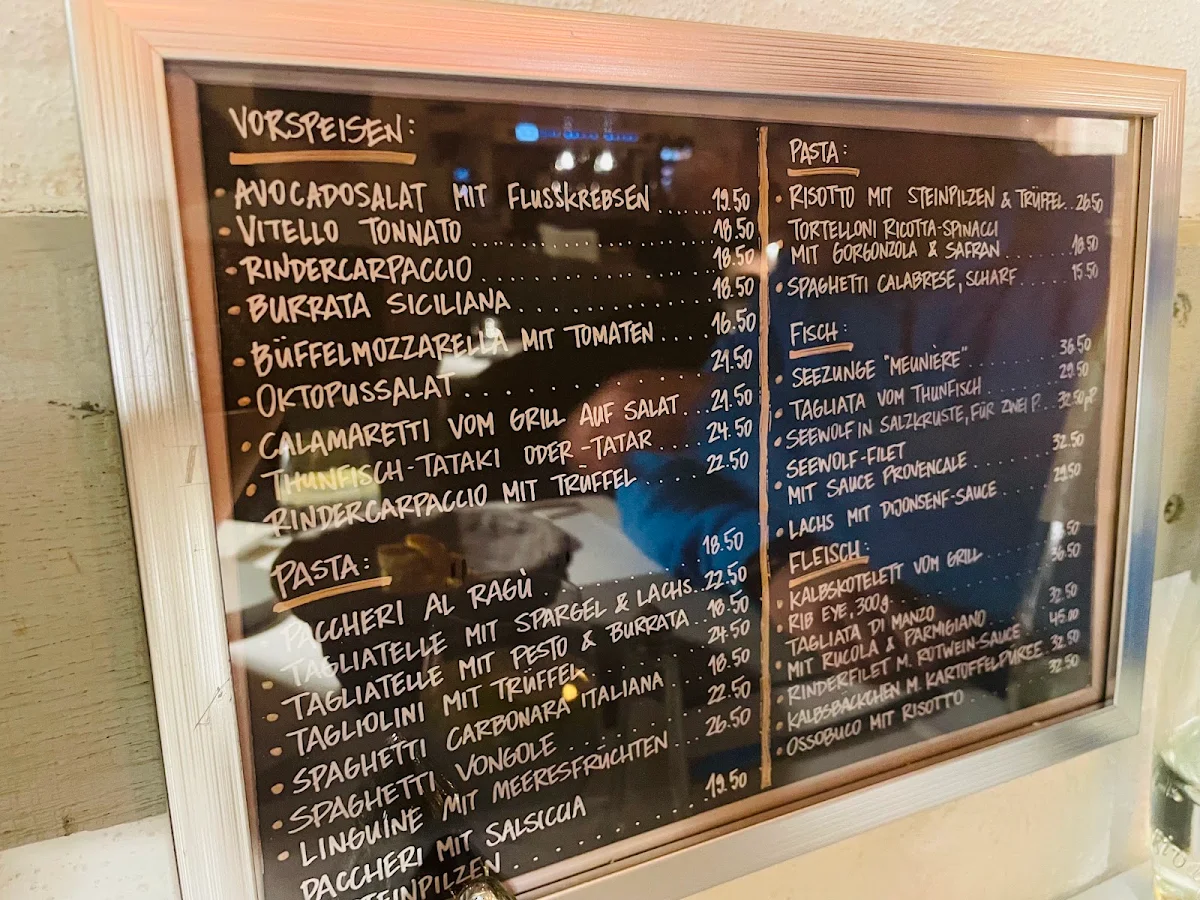 VORSPEISEN:
• AVOCADOSALAT MIT FLUSSKREBSEN ..... 19.50
• VITELLO TONNATO ..... 18.50
• RINDERCARPACCIO ..... 18.50
• BURRATA SICILIANA ..... 18.50
• BÜFFELMOZZARELLA MIT TOMATEN .... 16.50
• OKTOPUSSALAT ..... 21.50
• CALAMARETTI VOM GRILL AUF SALAT ... 21.50
• THUNFISCH-TATAKI ODER -TATAR .... 24.50
• RINDERCARPACCIO MIT TRÜFFEL ..... 22.50
PASTA:
• PACCHERI AL RAGÙ ..... 18.50
• TAGLIATELLE MIT SPARGEL & LACHS .. 22.50
• TAGLIATELLE MIT PESTO & BURRATA .. 18.50
• TAGLIOLINI MIT TRÜFFEL ..... 24.50
• SPAGHETTI CARBONARA ITALIANA .... 18.50
• SPAGHETTI VONGOLE ..... 22.50
• LINGUINE MIT MEERESFRÜCHTEN ... 26.50
PACCHERI MIT SALSICCIA
STEINPILZEN ..... 19.50
PASTA:
• RISOTTO MIT STEINPILZEN & TRÜFFEL .. 26.50
TORTELLONI RICOTTA-SPINACCI
MIT GORGONZOLA & SAFRAN ..... 18.50
• SPAGHETTI CALABRESE, SCHARF ..... 15.50
FISCH:
• SEEZUNGE "MEUNIÈRE" ..... 36.50
• TAGLIATA VOM THUNFISCH ..... 29.50
• SEEWOLF IN SALZKRUSTE, FÜR ZWEI P. .. 32.50 pP
SEEWOLF-FILET
MIT SAUCE PROVENCALE ..... 32.50
• LACHS MIT DIJONSENF-SAUCE ..... 29.50
FLEISCH:
• KALBSKOTELETT VOM GRILL .....
• RIB EYE, 300g ..... 36.50
TAGLIATA DI MANZO
MIT RUCOLA & PARMIGIANO ..... 32.50
• RINDERFILET M. ROTWEIN-SAUCE .. 45.00
• KALBSBÄCKCHEN M. KARTOFFELPÜREE .. 32.50
• OSSOBUCO MIT RISOTTO ..... 32.50